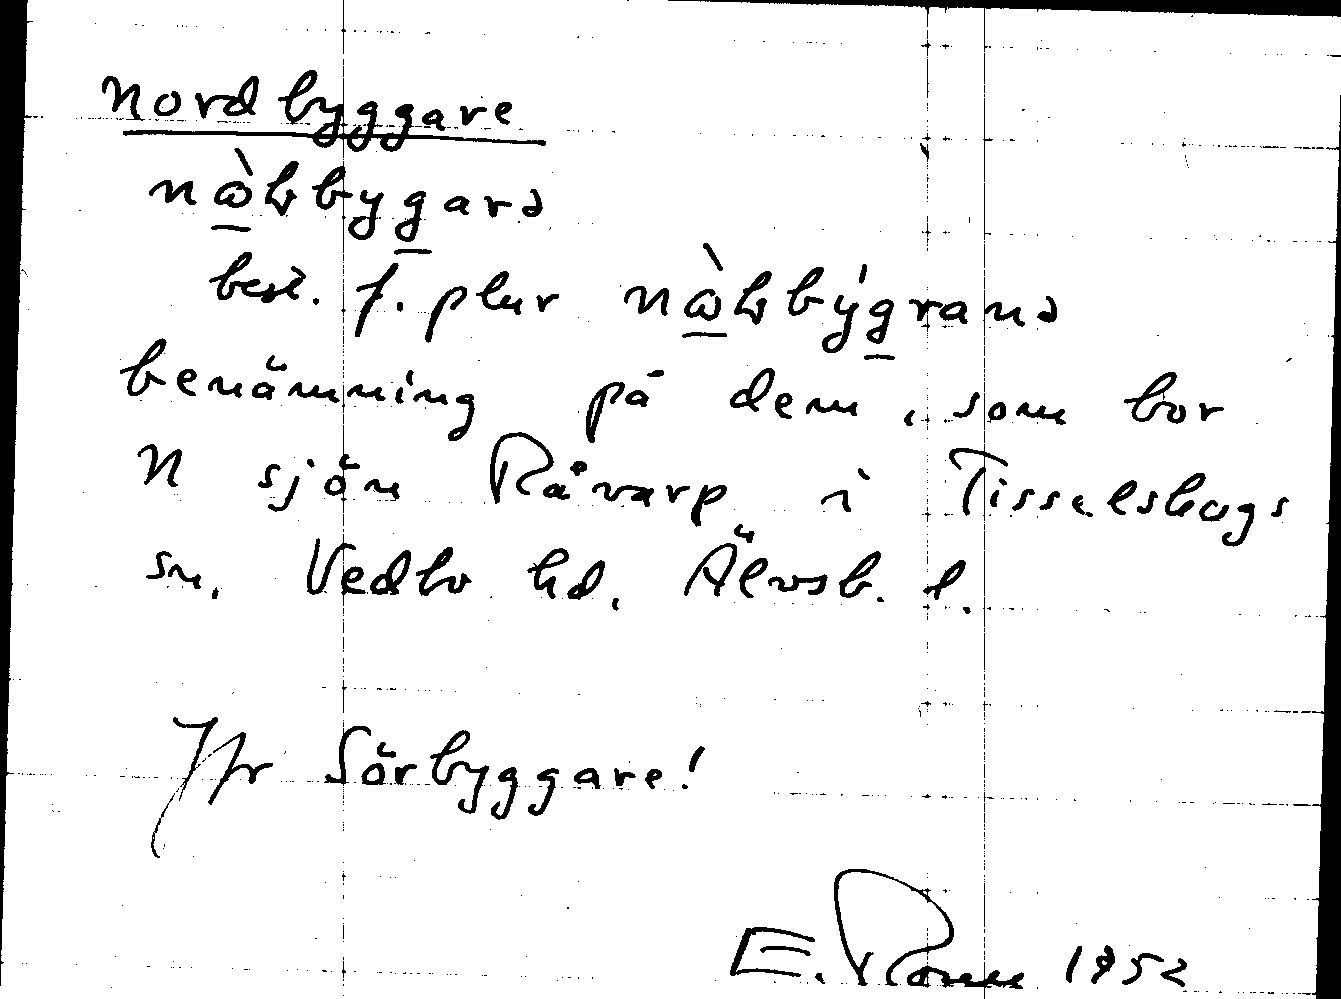 nordbyggare
best. f. plur
benämning på dem, som bor
N sjön Råvarp i Tisselskogs
sn. Vedbo hd. Älvsb. l.
Jfr Sörbyggare!
E. 1952